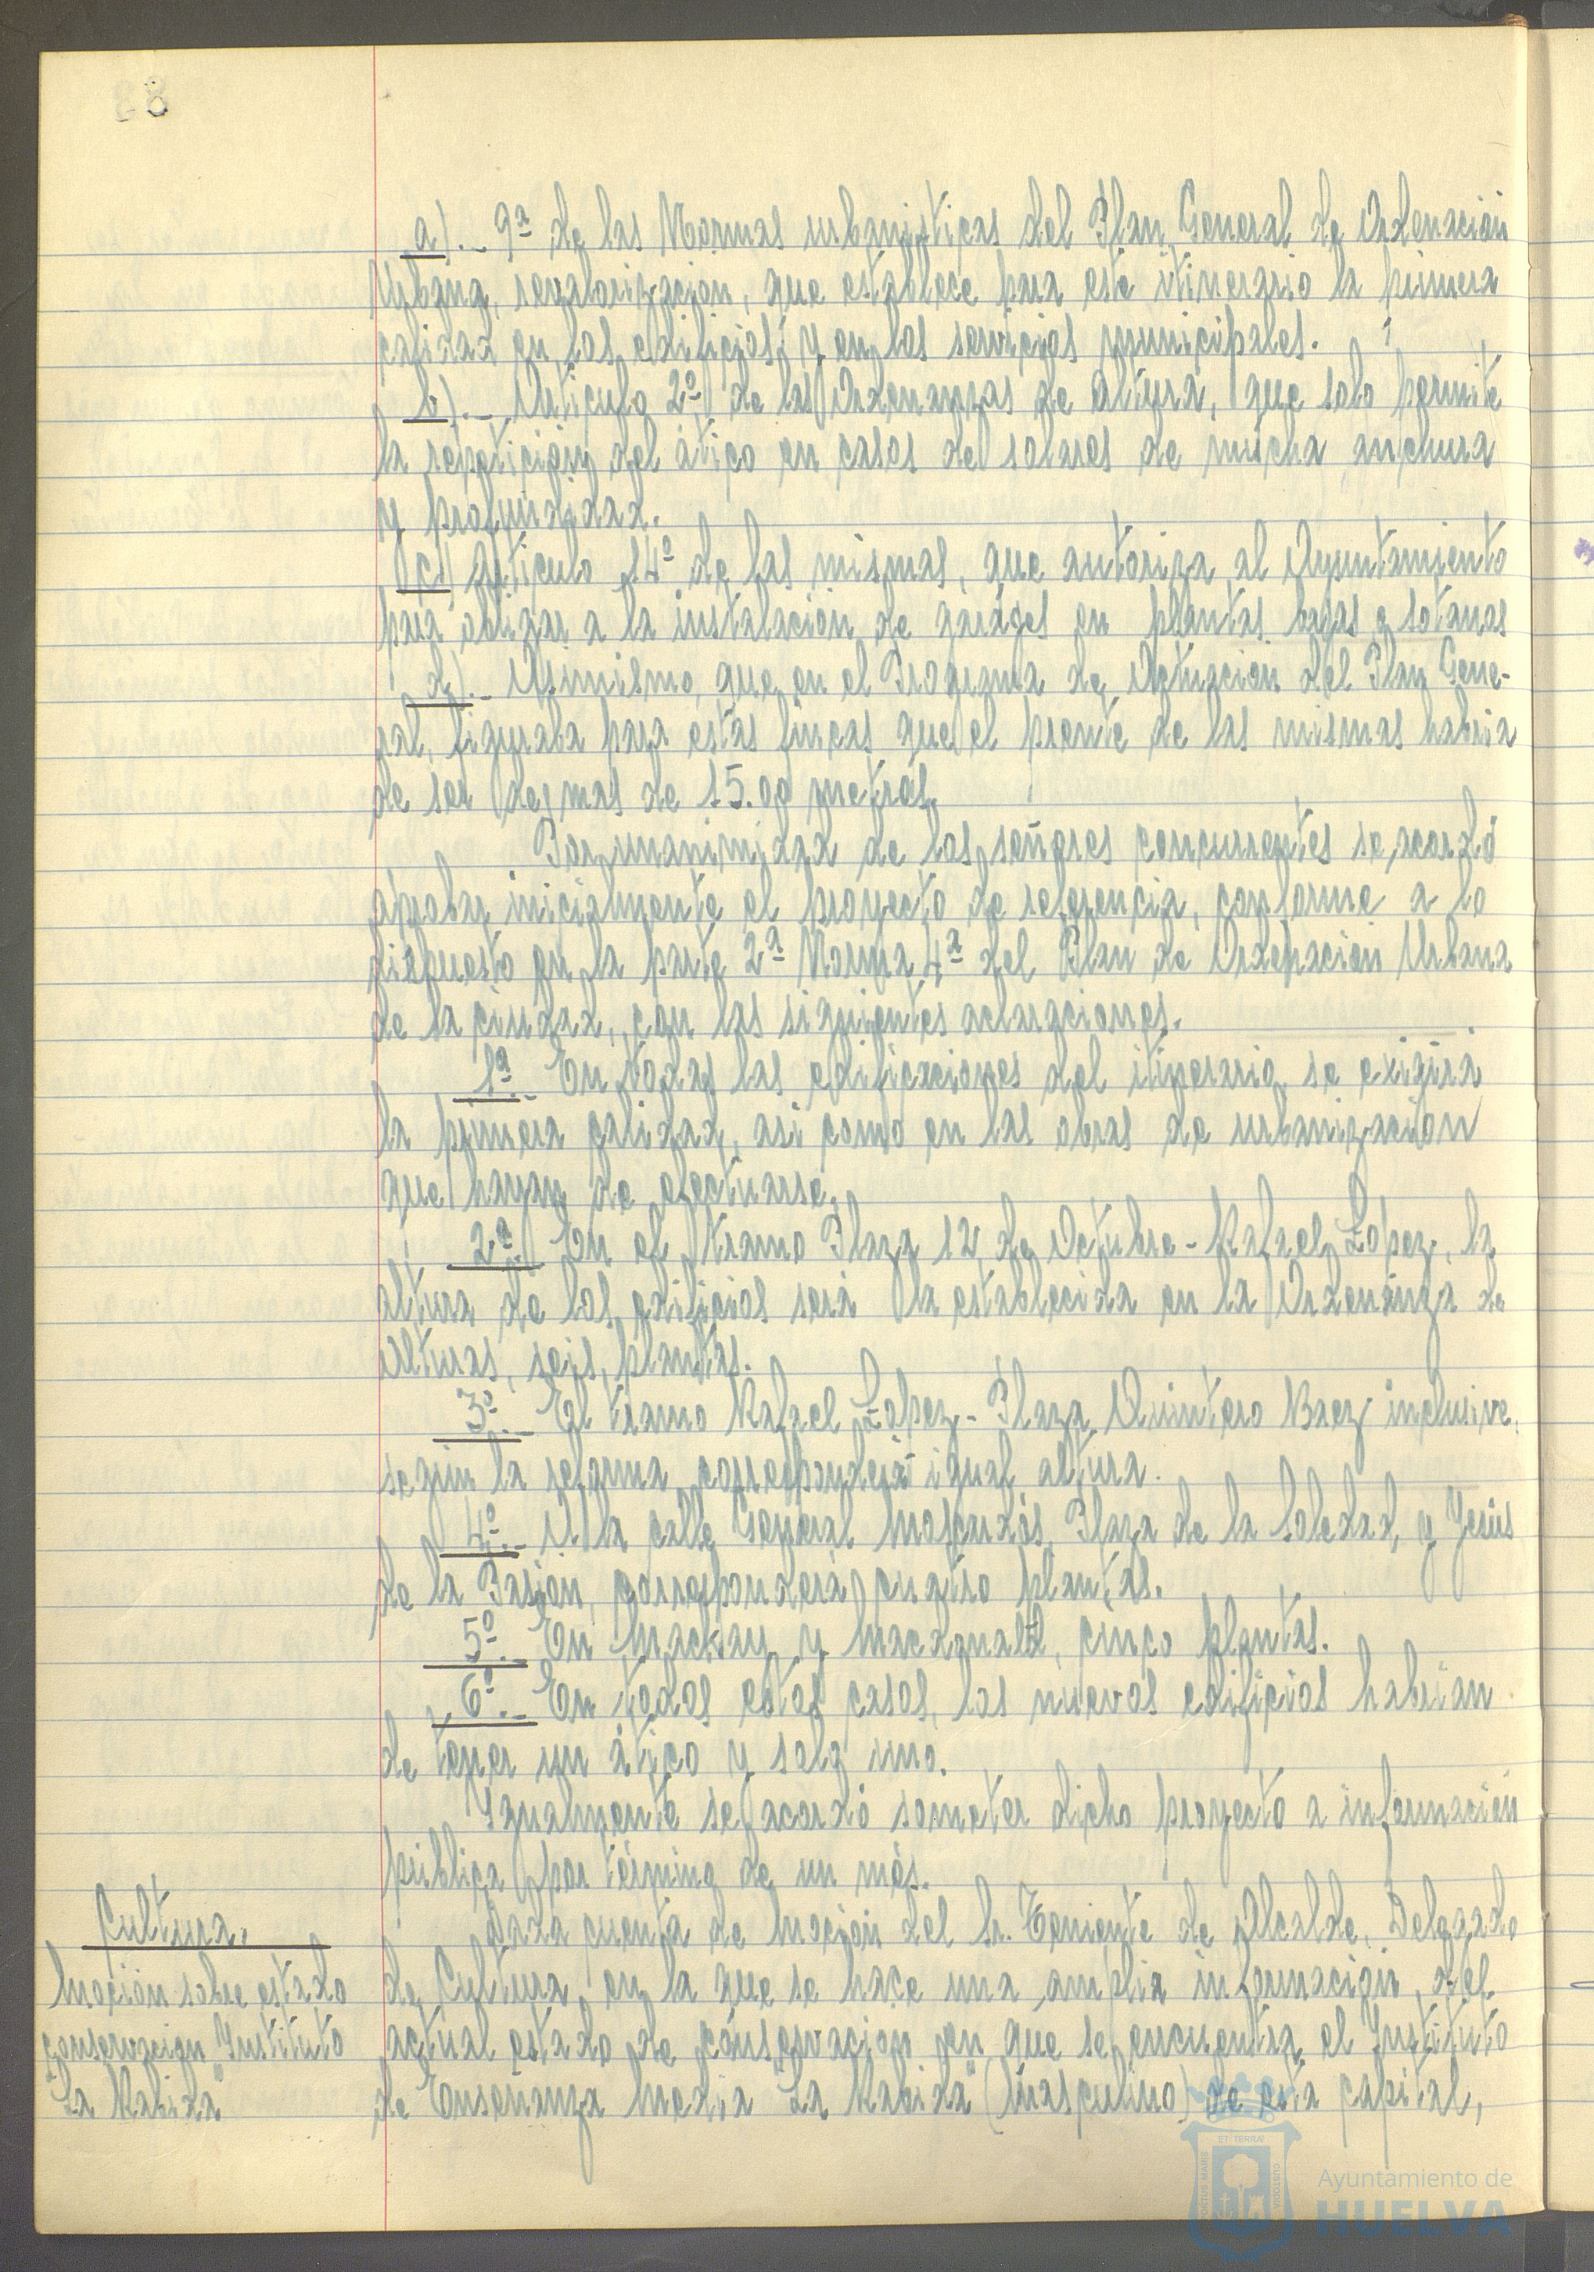 a).- 9ª de las Normas urbanisticas del Plan General de Ordenación
Urbana, revalorización, que establece para este itinerario la primera
calidad en los edificios y en los servicios municipales.
b).- Articulo 2º de las Ordenanzas de altura, que solo permite
la repetición del ático en casos de solares de mucha anchura
y profundidad.
c) Articulo 14º de las mismas, que autoriza al Ayuntamiento
para obligar a la instalación de garages en plantas bajas o sotanos
d).- Asimismo, que en el Programa de Actuación del Plan Gene-
ral, figuraba para estas fincas que el frente de las mismas habria
de ser de mas de 15.00 metros.
Por unanimidad de los señores concurrentes se acordó
aprobar inicialmente el proyecto de referencia, conforme a lo
dispuesto en la parte 2ª Norma 4ª del Plan de Ordenación Urbana
de la ciudad, con las siguientes aclaraciones.
1ª.- En todas las edificaciones del itinerario se exigirá
la primera calidad, asi como en las obras de urbanización
que hayan de efectuarse.
2ª.- En el tramo Plaza 12 de Octubre - Rafael López, la
altura de los edificios será la establecida en la Ordenanza de
Alturas, seis plantas.
3º.- El tramo Rafael López - Plaza Quintero Baez inclusive,
según la reforma corresponderá igual altura.
4º.- A la calle General Moscardós, Plaza de la Soledad, y Jesús
de la Pasión, corresponderá cuatro plantas.
5º.- En Mackay y Macdonald, cinco plantas.
6º.- En todos estos casos, los nuevos edificios habrian
de tener un ático y solo uno.
Igualmente se acordó someter dicho proyecto a información
pública por término de un més.
Cultura.
Moción sobre estado
conservación Instituto
"La Rabida"
Dada cuenta de Moción del Sr. Teniente de Alcalde, Delegado
de Cultura, en la que se hace una amplia información, del
actual estado de conservacion en que se encuentra el Instituto
de Enseñanza Media "La Rabida" (Masculino) de esta capital,
Ayuntamiento de
HUELVA